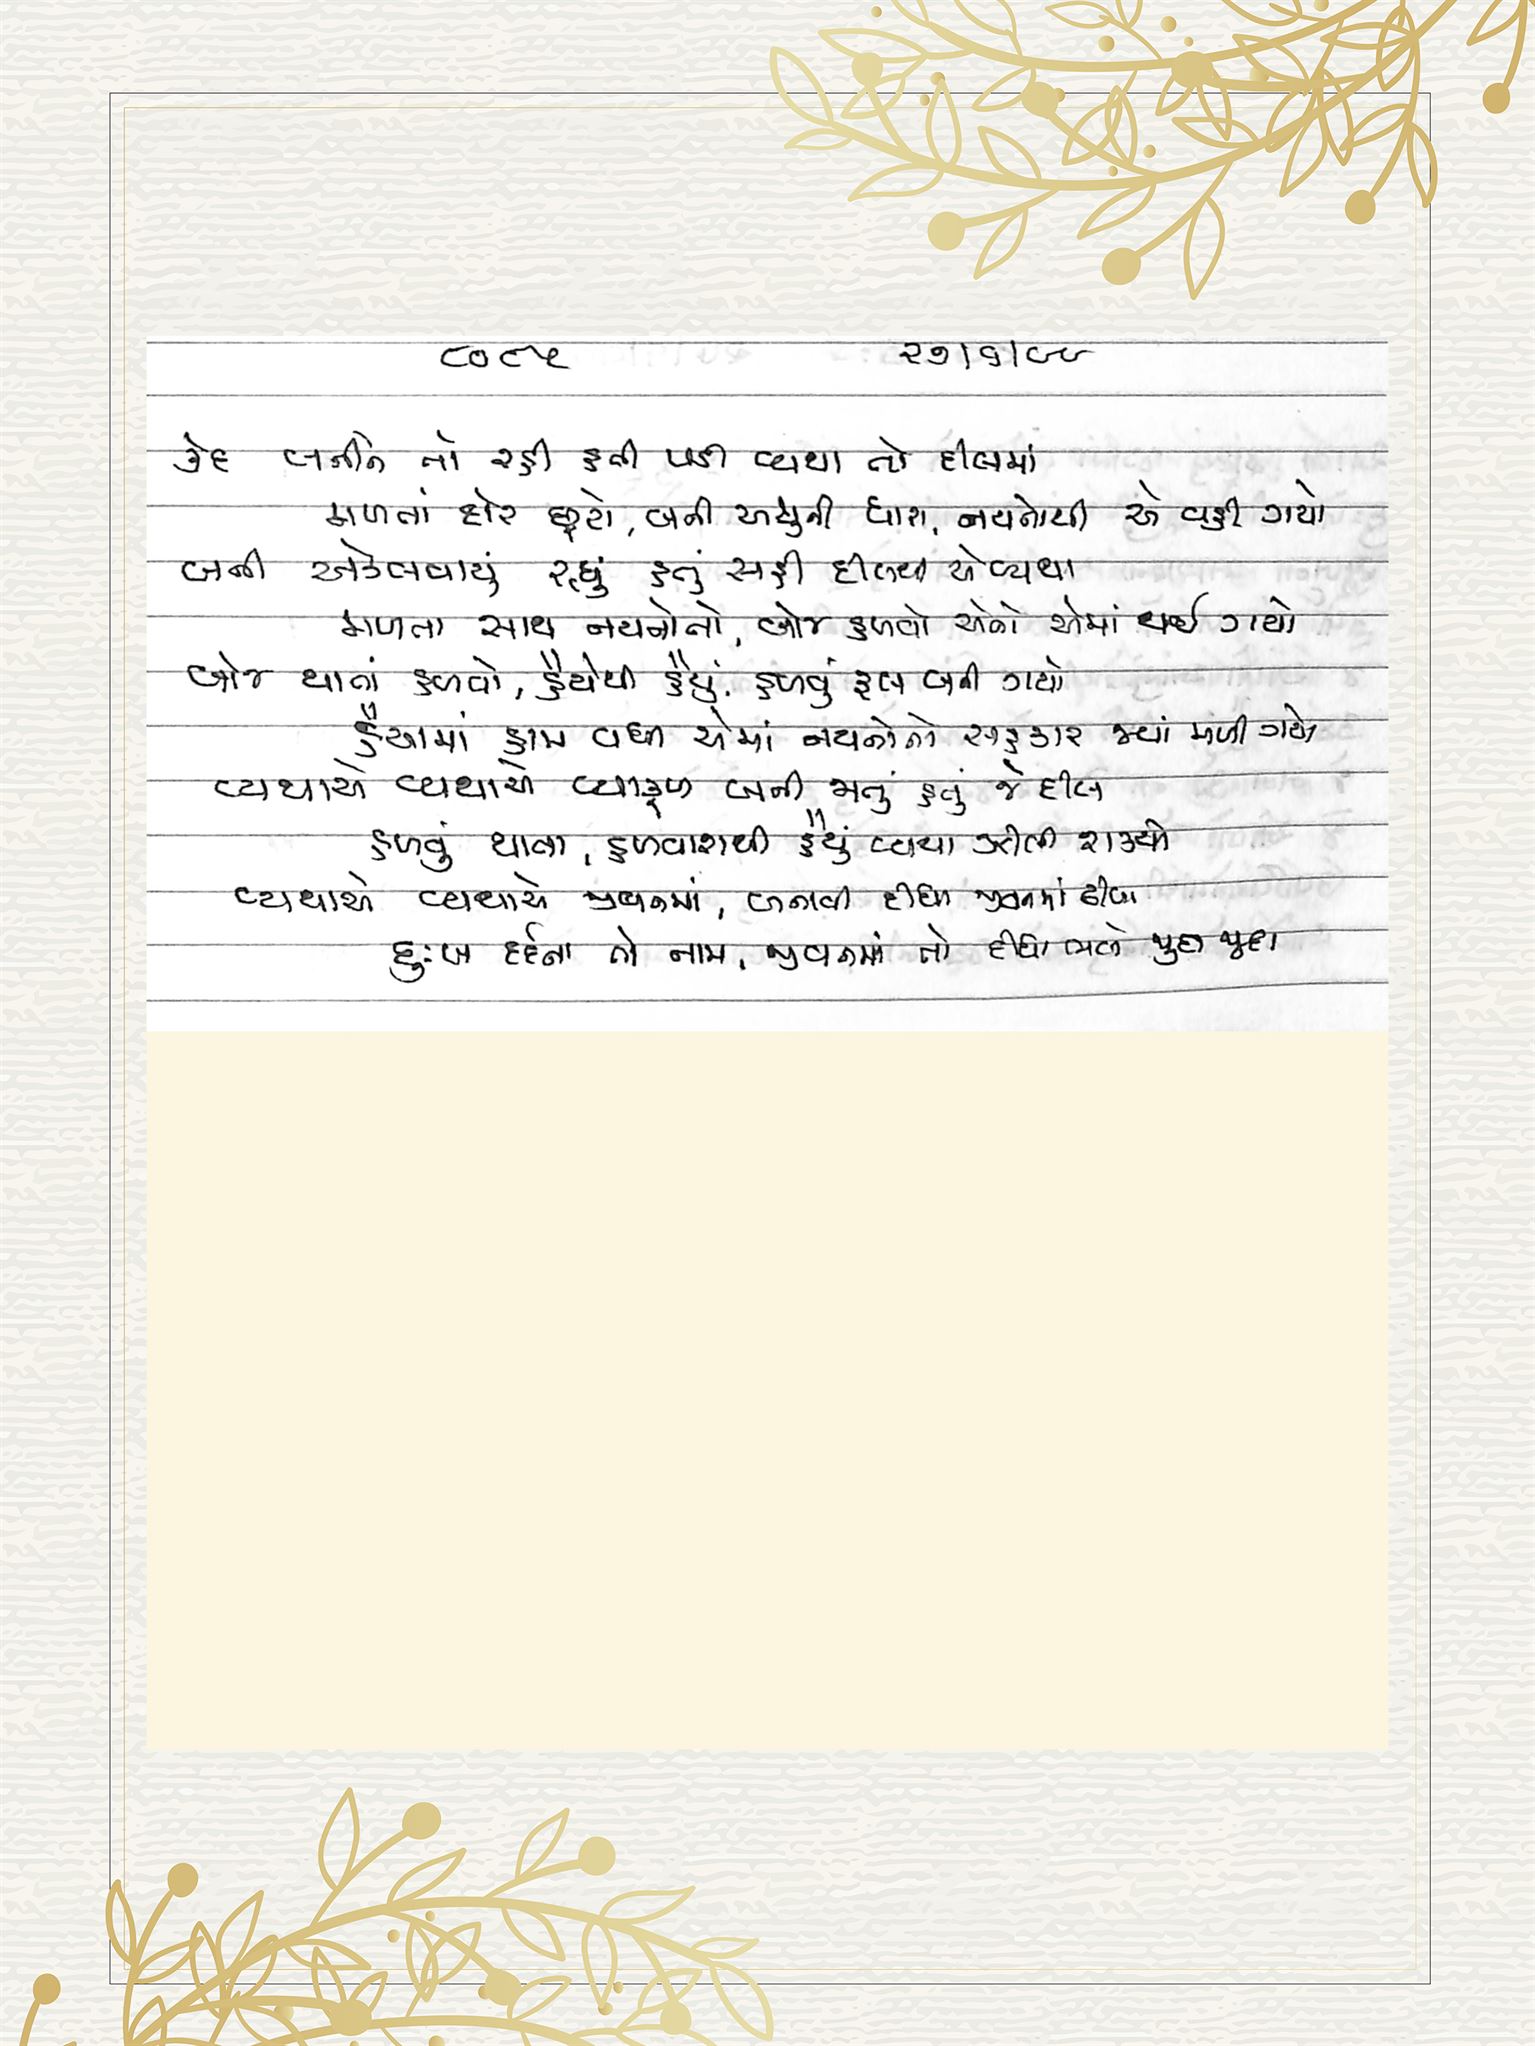 ૮૦૮૫ ૨૭|૬|૯૯
કેદ બનીને તો રહી હતી પડી વ્યથા તો દીલમાં
મળતાં દોર છૂટો, બની અશ્રુની ધારા, નયનોથી એ વહી ગયો
બની અકેલવાયું રહ્યું હતું સહી દીલથી એ વ્યથા
મળતા સાથ નયનોનો, બોજ હળવો એનો એમાં થઈ ગયો
બોજ થાતાં હળવો, હૈયેથી હૈયું હળવું ફૂલ બની ગયો
હૈયામાં હામ વધી એમાં નયનોનો સહકાર જ્યાં મળી ગયો
વ્યથાએ વ્યથાએ વ્યાકૂળ બની જાતું હતું જે દીલ
હળવું થાતા, હળવાશથી હૈયું વ્યથા ઝીલી શક્યો
વ્યથાએ વ્યથાએ જીવનમાં, બનાવી દીધા જીવનમાં ઢીલા
દુઃખ દર્દના તો નામ, જીવનમાં તો દીધા ભલે જુદા જુદા